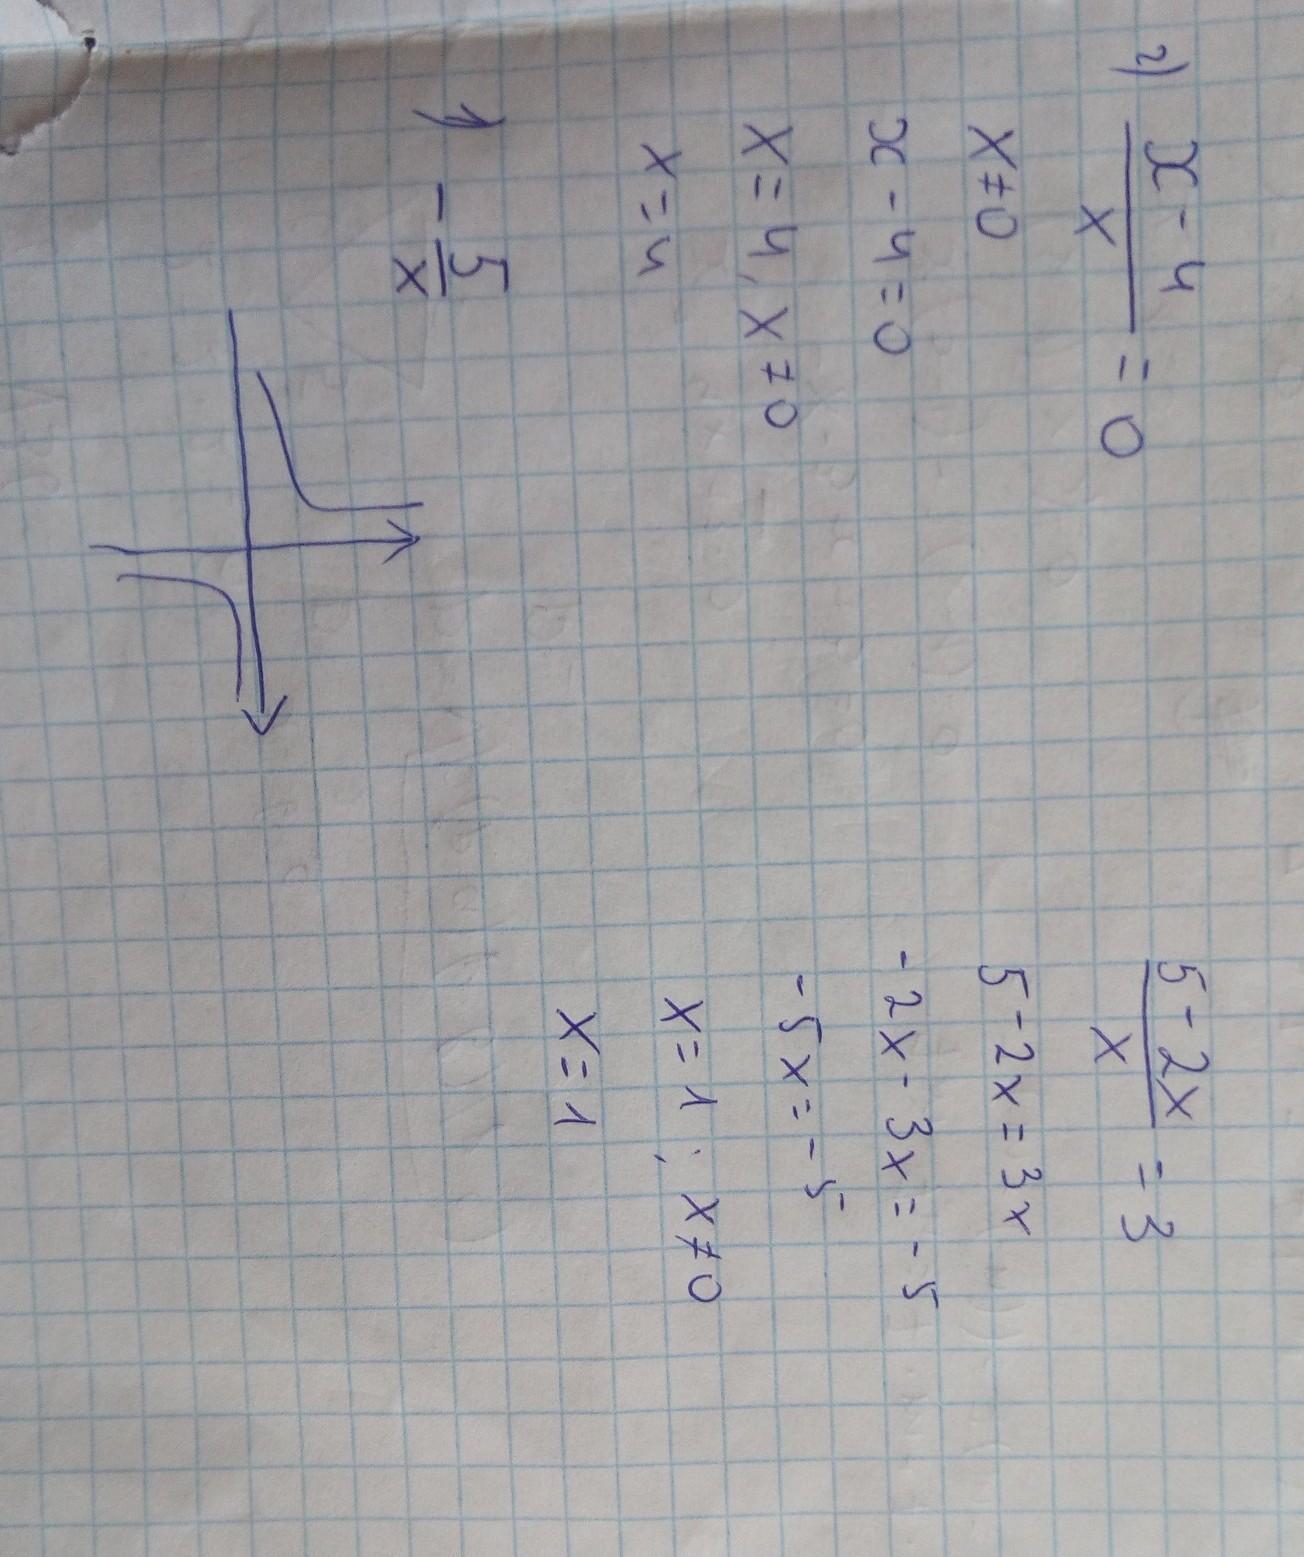 2) (x - 4)/x = 0
x ≠ 0
x - 4 = 0
x = 4, x ≠ 0
x = 4
1) - 5/x
(5 - 2x)/x = 3
5 - 2x = 3x
- 2x - 3x = - 5
- 5x = - 5
x = 1; x ≠ 0
x = 1